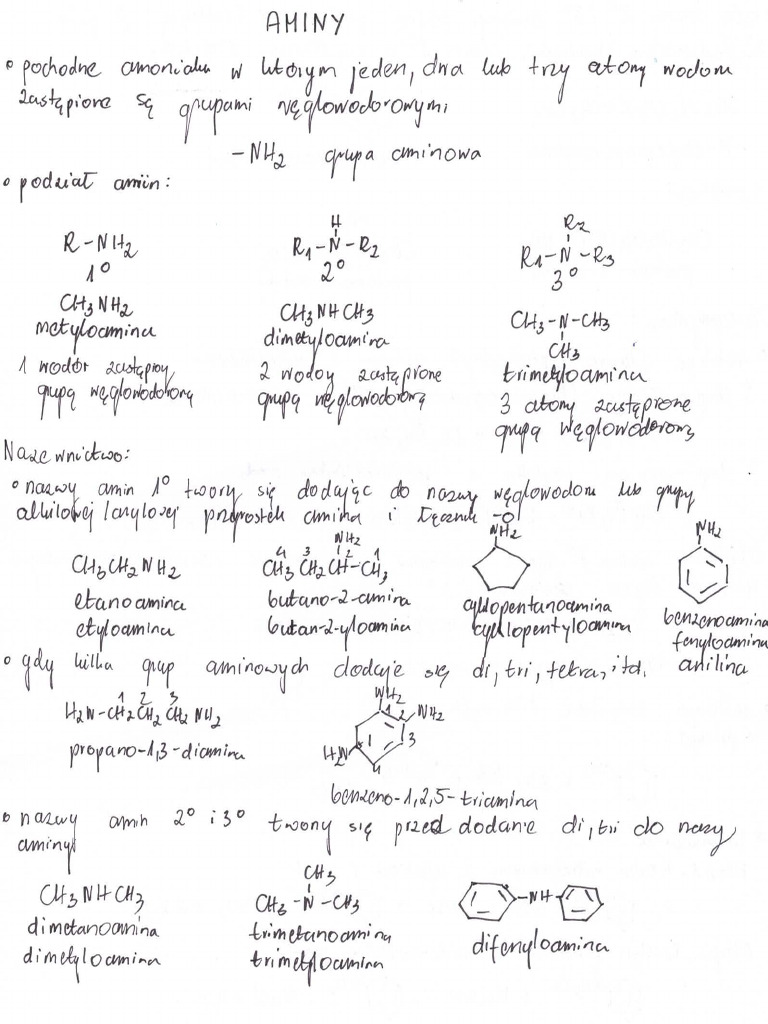 AMINY
• pochodne amoniaku w którym jeden, dwa lub trzy atomy wodoru
zastąpione są grupami węglowodorowymi
-NH2 grupa aminowa
• podział amin:
R-NH2
1°
CH3NH2
metyloamina
1 wodór zastąpiony
grupą węglowodorową
H
R1-N-R2
2°
CH3NHCH3
dimetyloamina
2 wodory zastąpione
grupą węglowodorową
R2
R1-N-R3
3°
CH3-N-CH3
CH3
trimetyloamina
3 atomy zastąpione
grupą węglowodorową
Nazewnictwo:
• nazwy amin 1° tworzy się dodając do nazwy węglowodoru lub grupy
alkilowej/arylowej przyrostek amina i łącznik -o|
CH3CH2NH2
etanoamina
etyloamina
NH2
4 3 2 1
CH3CH2CH-CH3
butano-2-amina
butan-2-yloamina
NH2
cyklopentanoamina
cyklopentyloamina
NH2
benzenoamina
fenyloamina
anilina
• gdy kilka grup aminowych dodaje się di, tri, tetra, itd.
1 2 3
H2N-CH2CH2CH2NH2
propano-1,3-diamina
NH2
1 2 NH2
3
H2N
4
benzeno-1,2,5-triamina
• nazwy amin 2° i 3° tworzy się przed dodanie di, tri do nazwy
aminy
CH3NHCH3
dimetanoamina
dimetyloamina
CH3
CH3-N-CH3
trimetanoamina
trimetyloamina
-NH-
difenyloamina